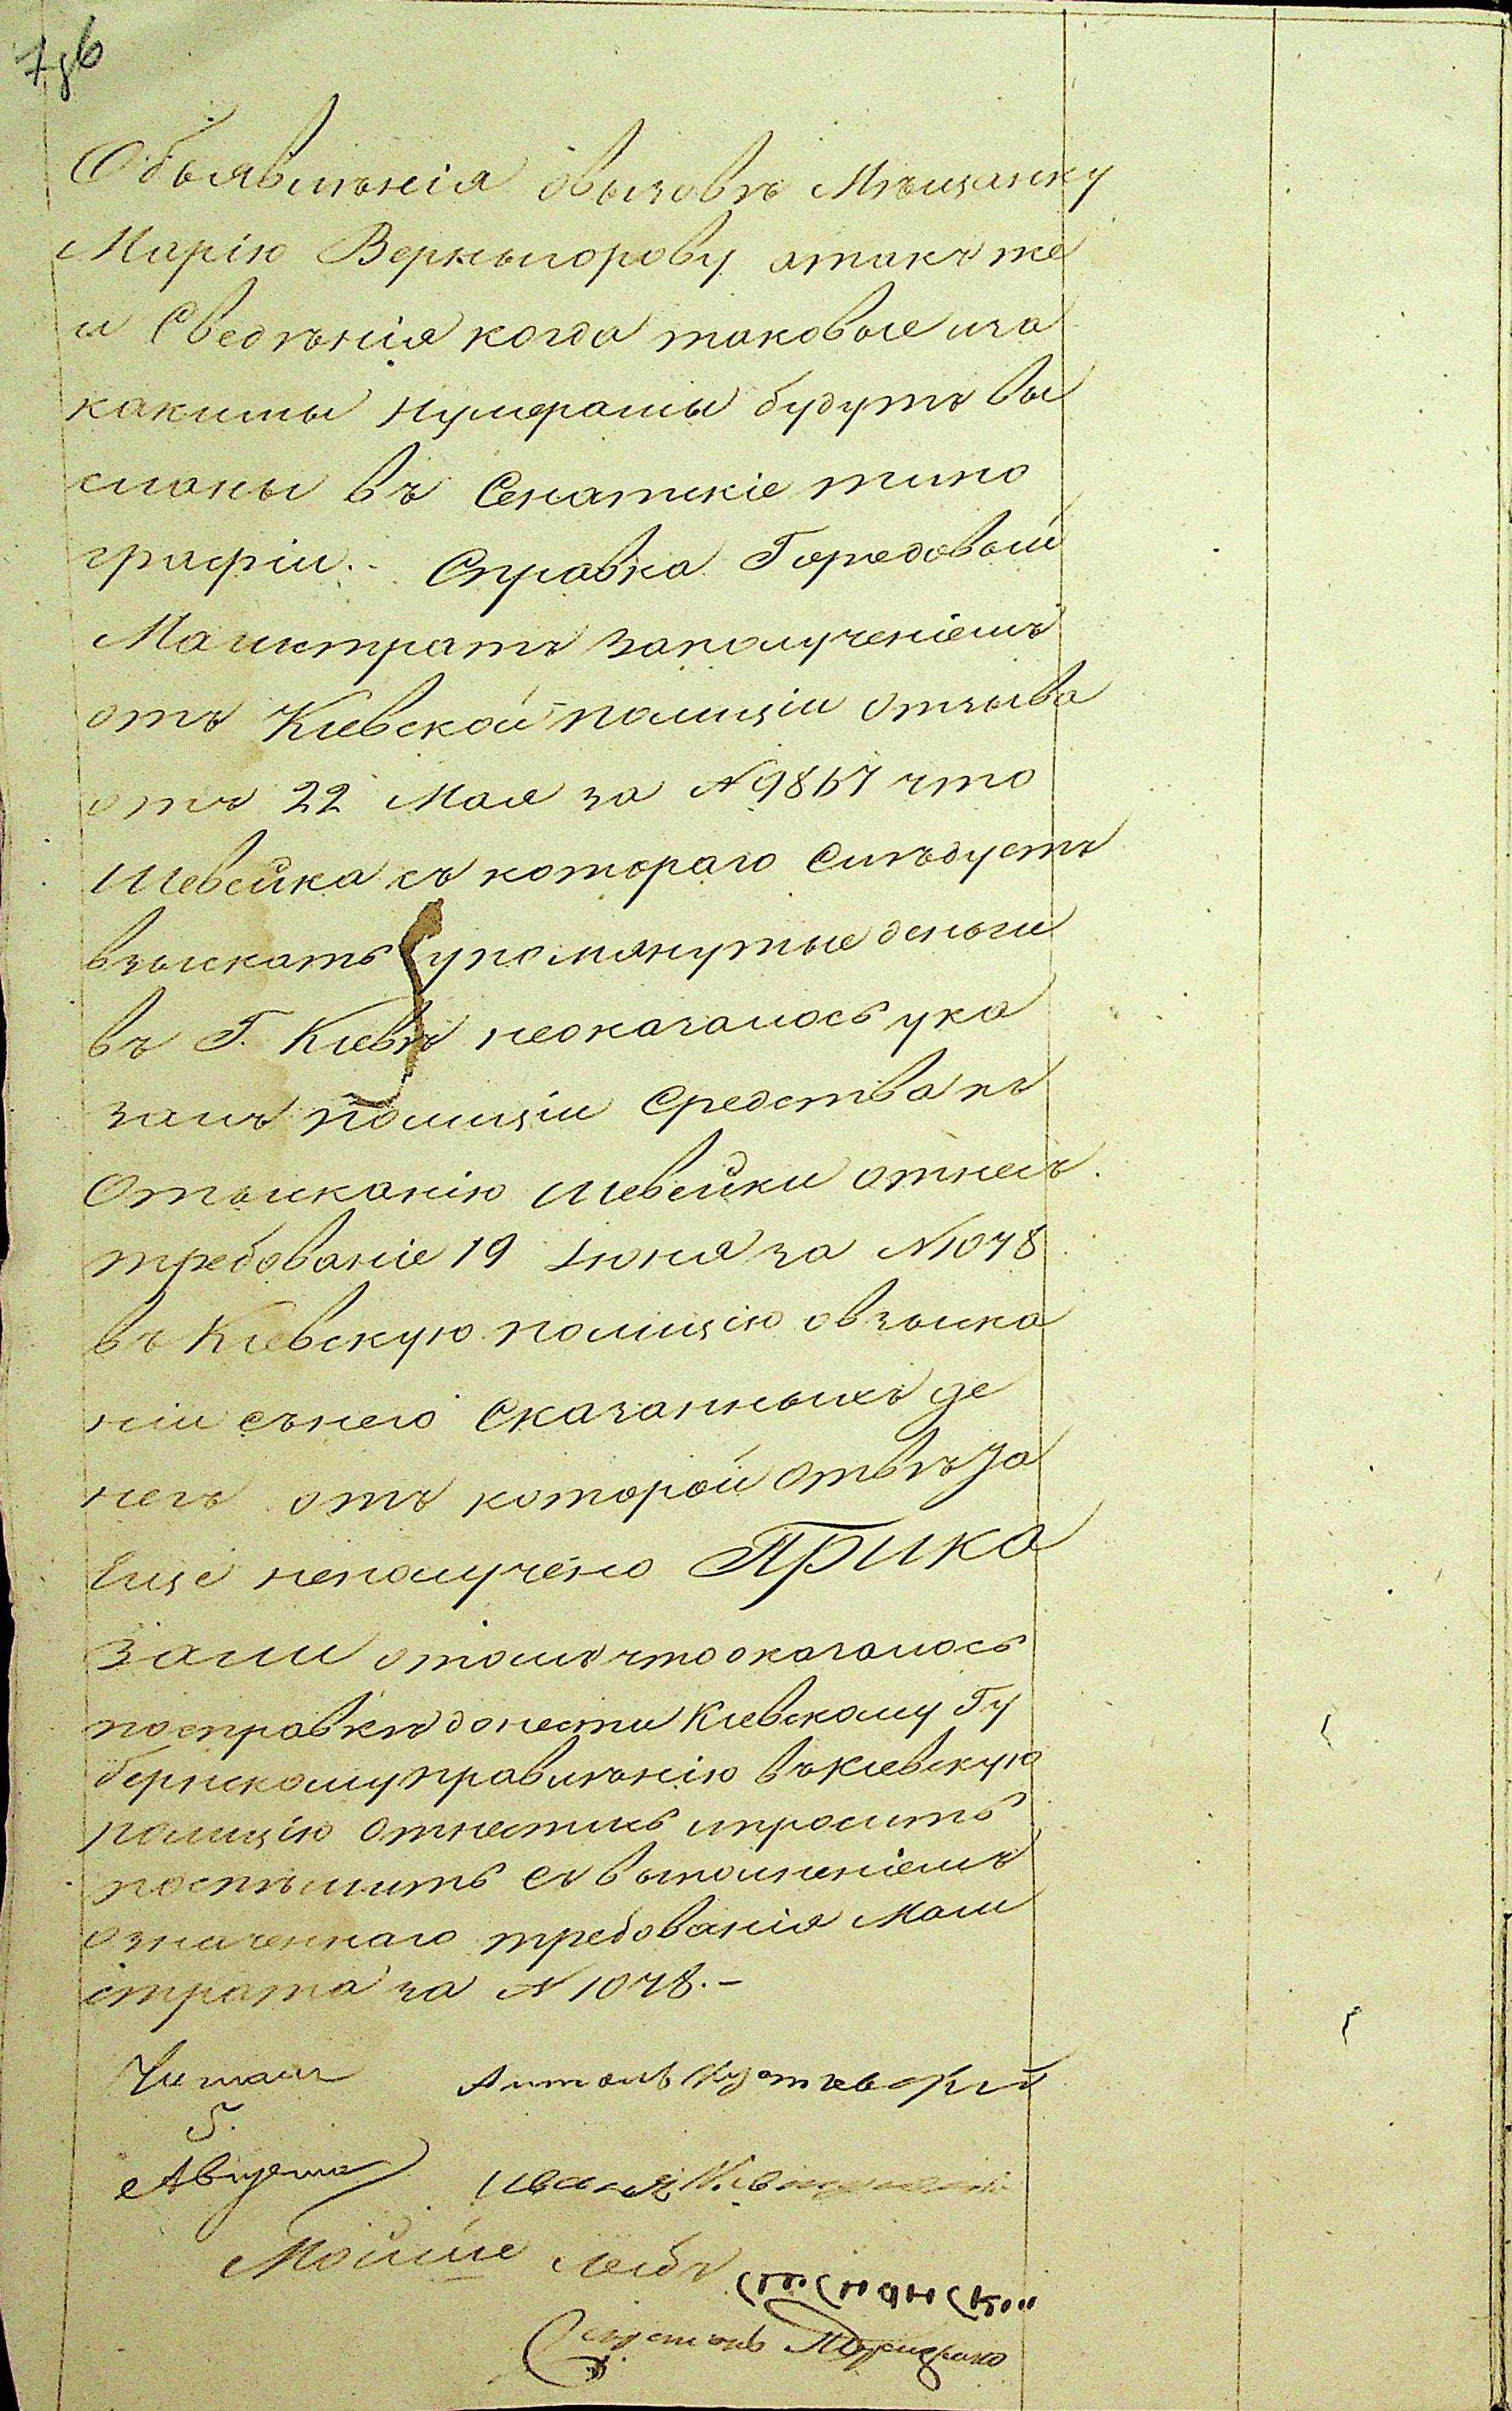 Объявленія овызовѣ Мѣщанку
Марію Вернигорову атакъ же
и Сведѣнія когда таковые иза
какимы нумерамы будутъ вы
сланы въ Сенатскіе типо
графіи.- Справка Городовый
Магистратъ заполученіемъ
отъ Кіевской полиціи отзыва
отъ 22 Мая за N 9867 что
Шевейка съ котораго Слѣдуетъ
взыскать упомянутые деньги
въ Г. Кіевѣ неоказалось ука
залъ полиціи Средства къ
Отысканію Шевейки отнесъ
требованіе 19 Іюня за N 1048
въ Кіевскую полицію овзыска
ніи снего Сказанныхъ де
негъ отъ которой отвѣта
Еще неполучено ПРИКА
ЗАЛИ отомъ что оказалось
посправкѣ донести Кіевскому Гу
бернскому правленію въ Кіевскую
полицію отнестись ипросить
поспѣшить съ выполненіемъ
означеннаго требованія Маги
страта за N 1048.-
Читалъ Антонъ
5.
Августа Иванъ
Мойше Лейбъ